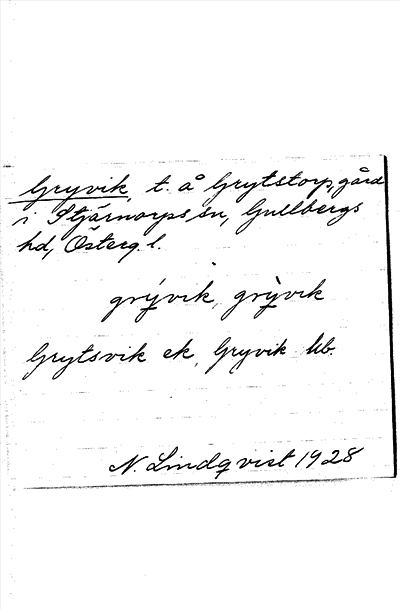 Gryvik, t. å Grytstorp, gård
i Stjärnorps sn, Gullbergs
hd, Österg. l.
grývik, grỳvik
Grytsvik ek, Gryvik bb.
N. Lindqvist 1928